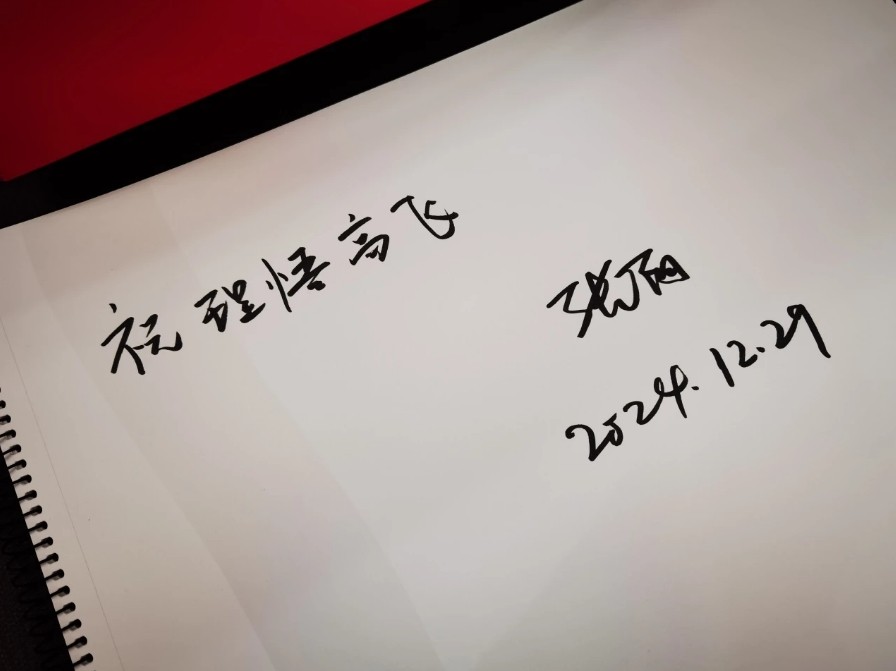 祝理悟高飞
2024.12.29